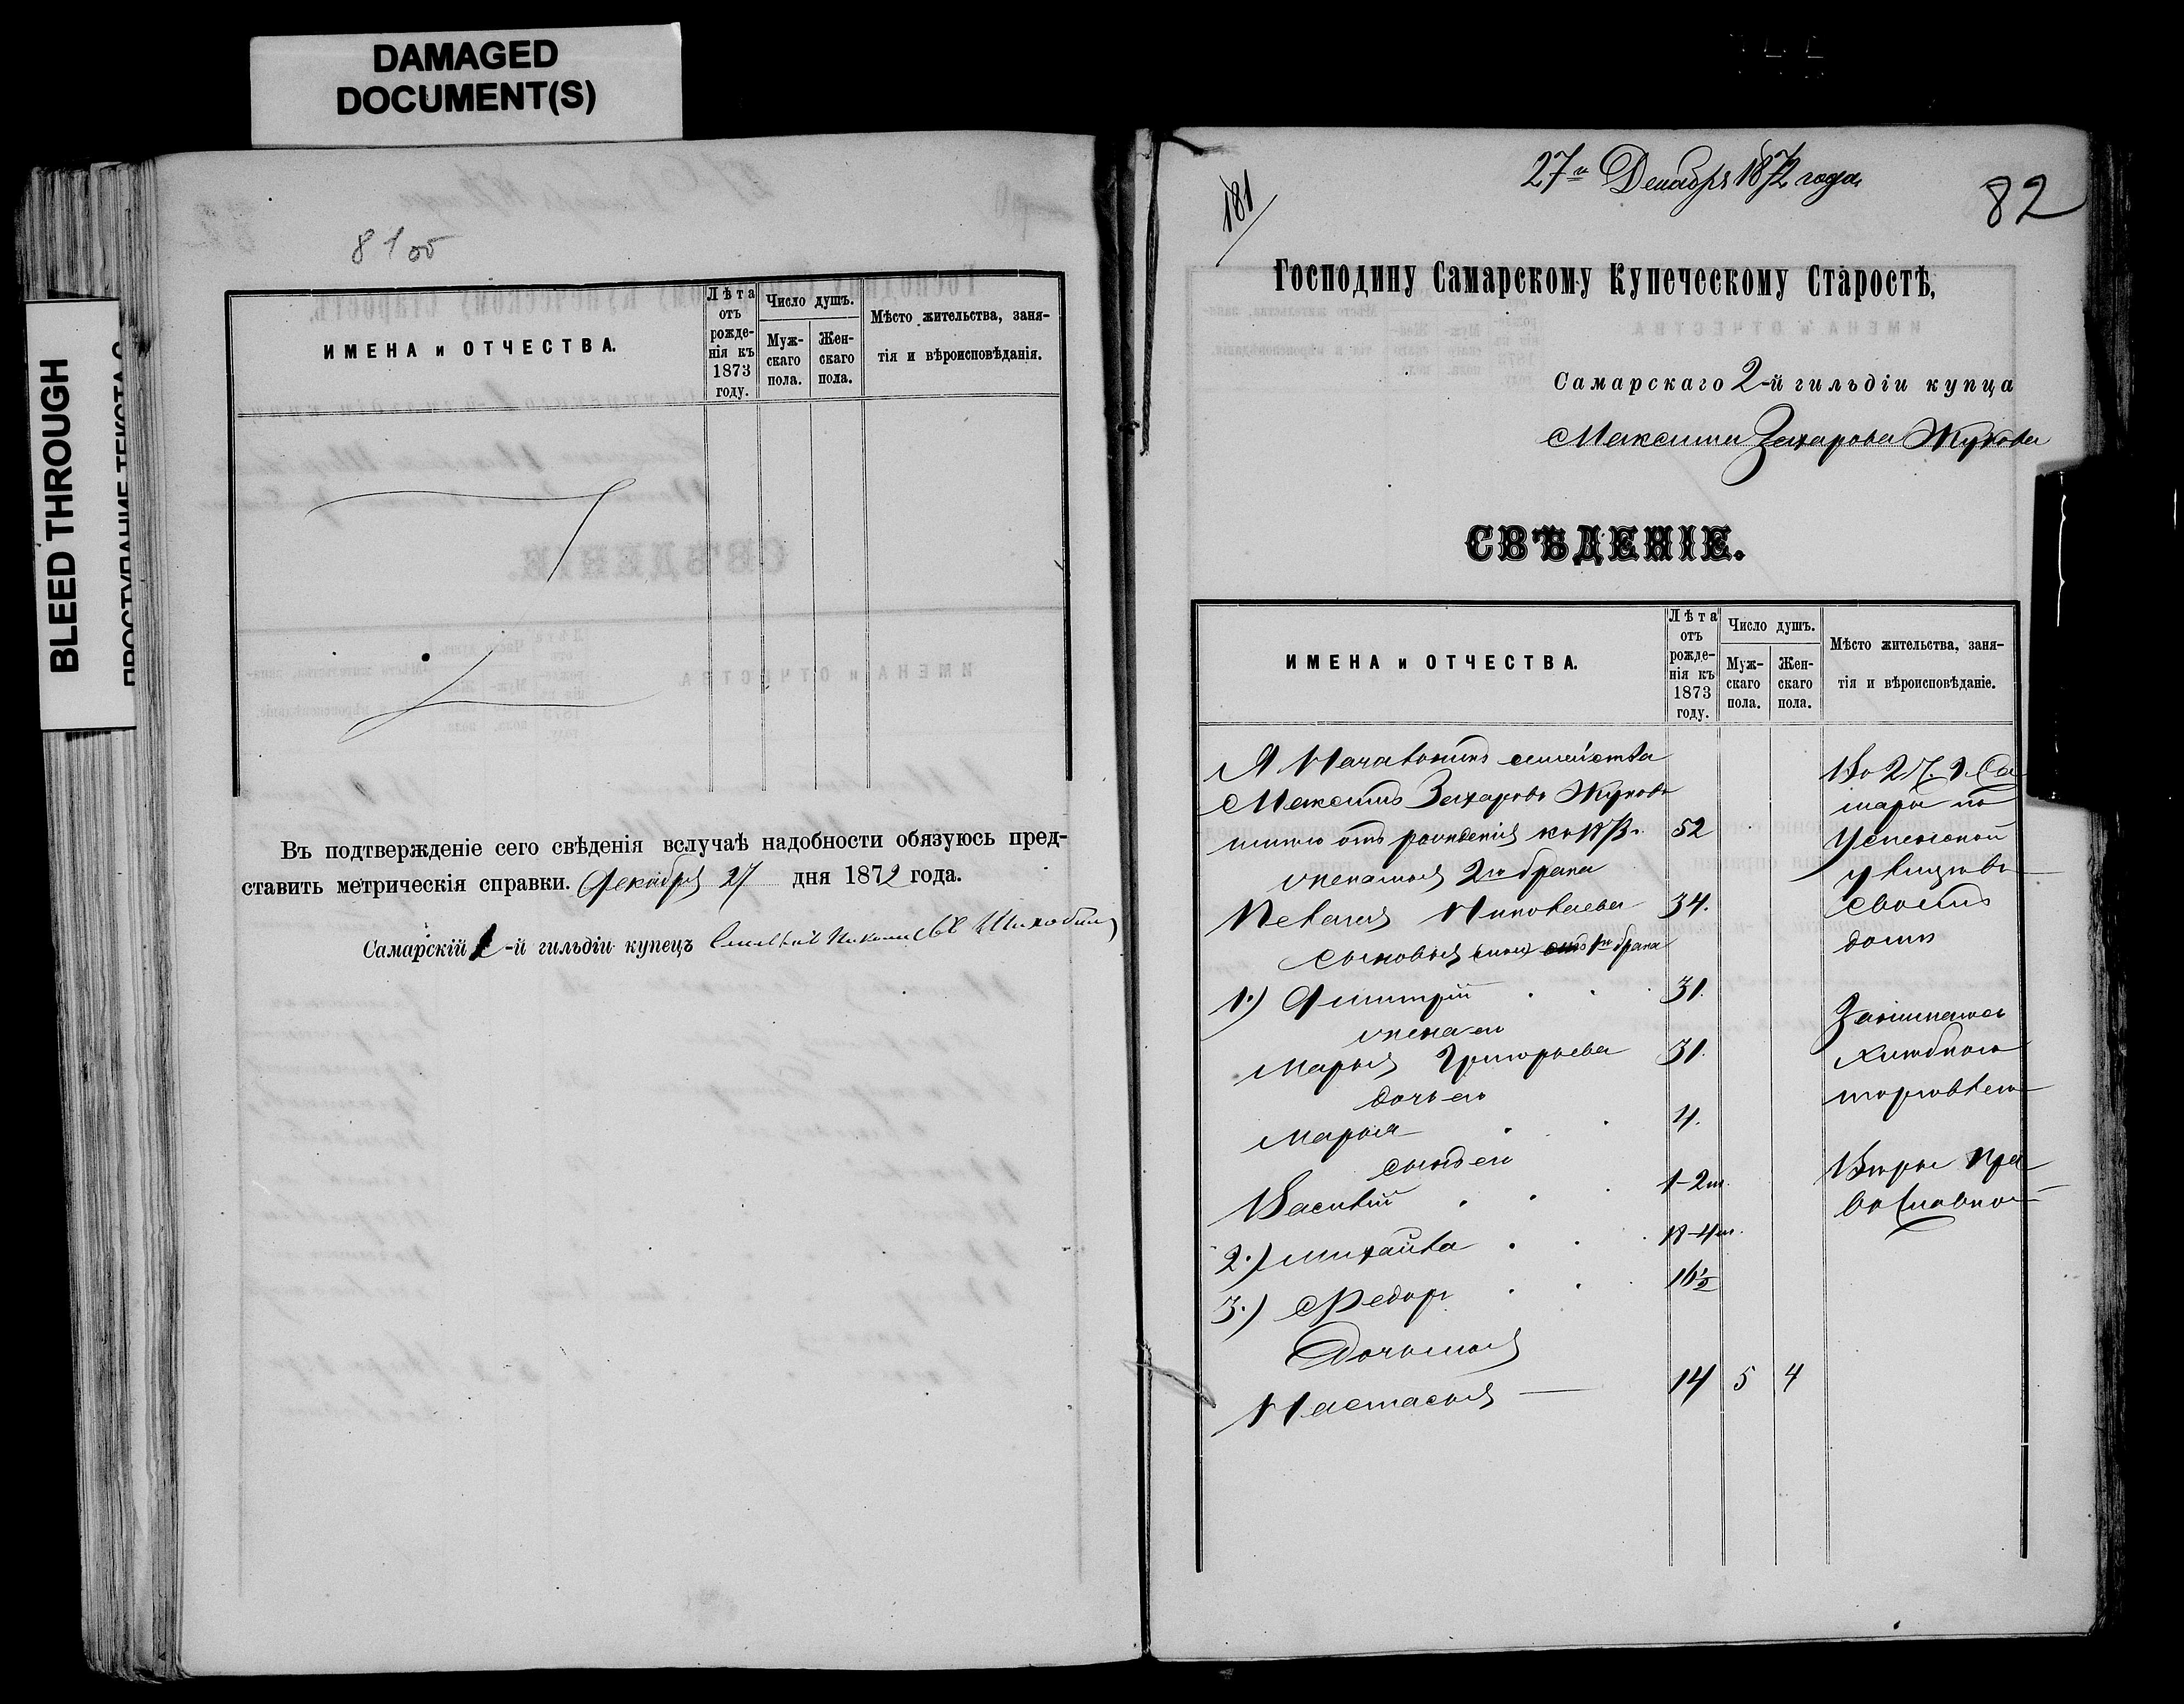 DAMAGED
DOCUMENT(S)
BLEED THROUGH
81 об
ИМЕНА и ОТЧЕСТВА.
Лѣта отъ рожде-нія къ 1873 году.
Число душъ.
Муж-скаго пола.
Жен-скаго пола.
Мѣсто жительства, заня-
тія и вѣроисповѣданія.
Въ подтвержденіе сего свѣденія вслучаѣ надобности обязуюсь пред-
ставить метрическія справки. Декабря 27 дня 1872 года.
Самарскій -й гильдіи купецъ
181
27го Декабря 1872 года
82
Господину Самарскому Купеческому Старостѣ,
Самарскаго 2-й гильдіи купца
Максима Захарова Жукова
СВѢДЕНІЕ.
ИМЕНА и ОТЧЕСТВА.
Лѣта отъ рожде-нія къ 1873 году.
Число душъ.
Муж-скаго пола.
Жен-скаго пола.
Мѣсто жительства, заня-
тія и вѣроисповѣданіе.
Я Начальникъ семейства
Максимъ Захаровъ Жуковъ
имѣю отъ рожденія къ 1873г. 52
жена моя 2го брака
Пелагия Николаева 34.
сыновья мои отъ 1го брака
1.) Дмитрій 31.
жена его
Марья Григорьева 31.
дочь его
Марья 4.
сынъ его
Василій 1-2м.
2.) Михайла 18-4м.
3.) Федоръ 16½
Дочь моя
Настасья 14 5 4
Во 2 Ч. г. Са
мары по
Успенской
улицѣ въ
своемъ
домѣ
Занимаюсь
хлѣбною
торговлею
Вѣры Пра
вославной